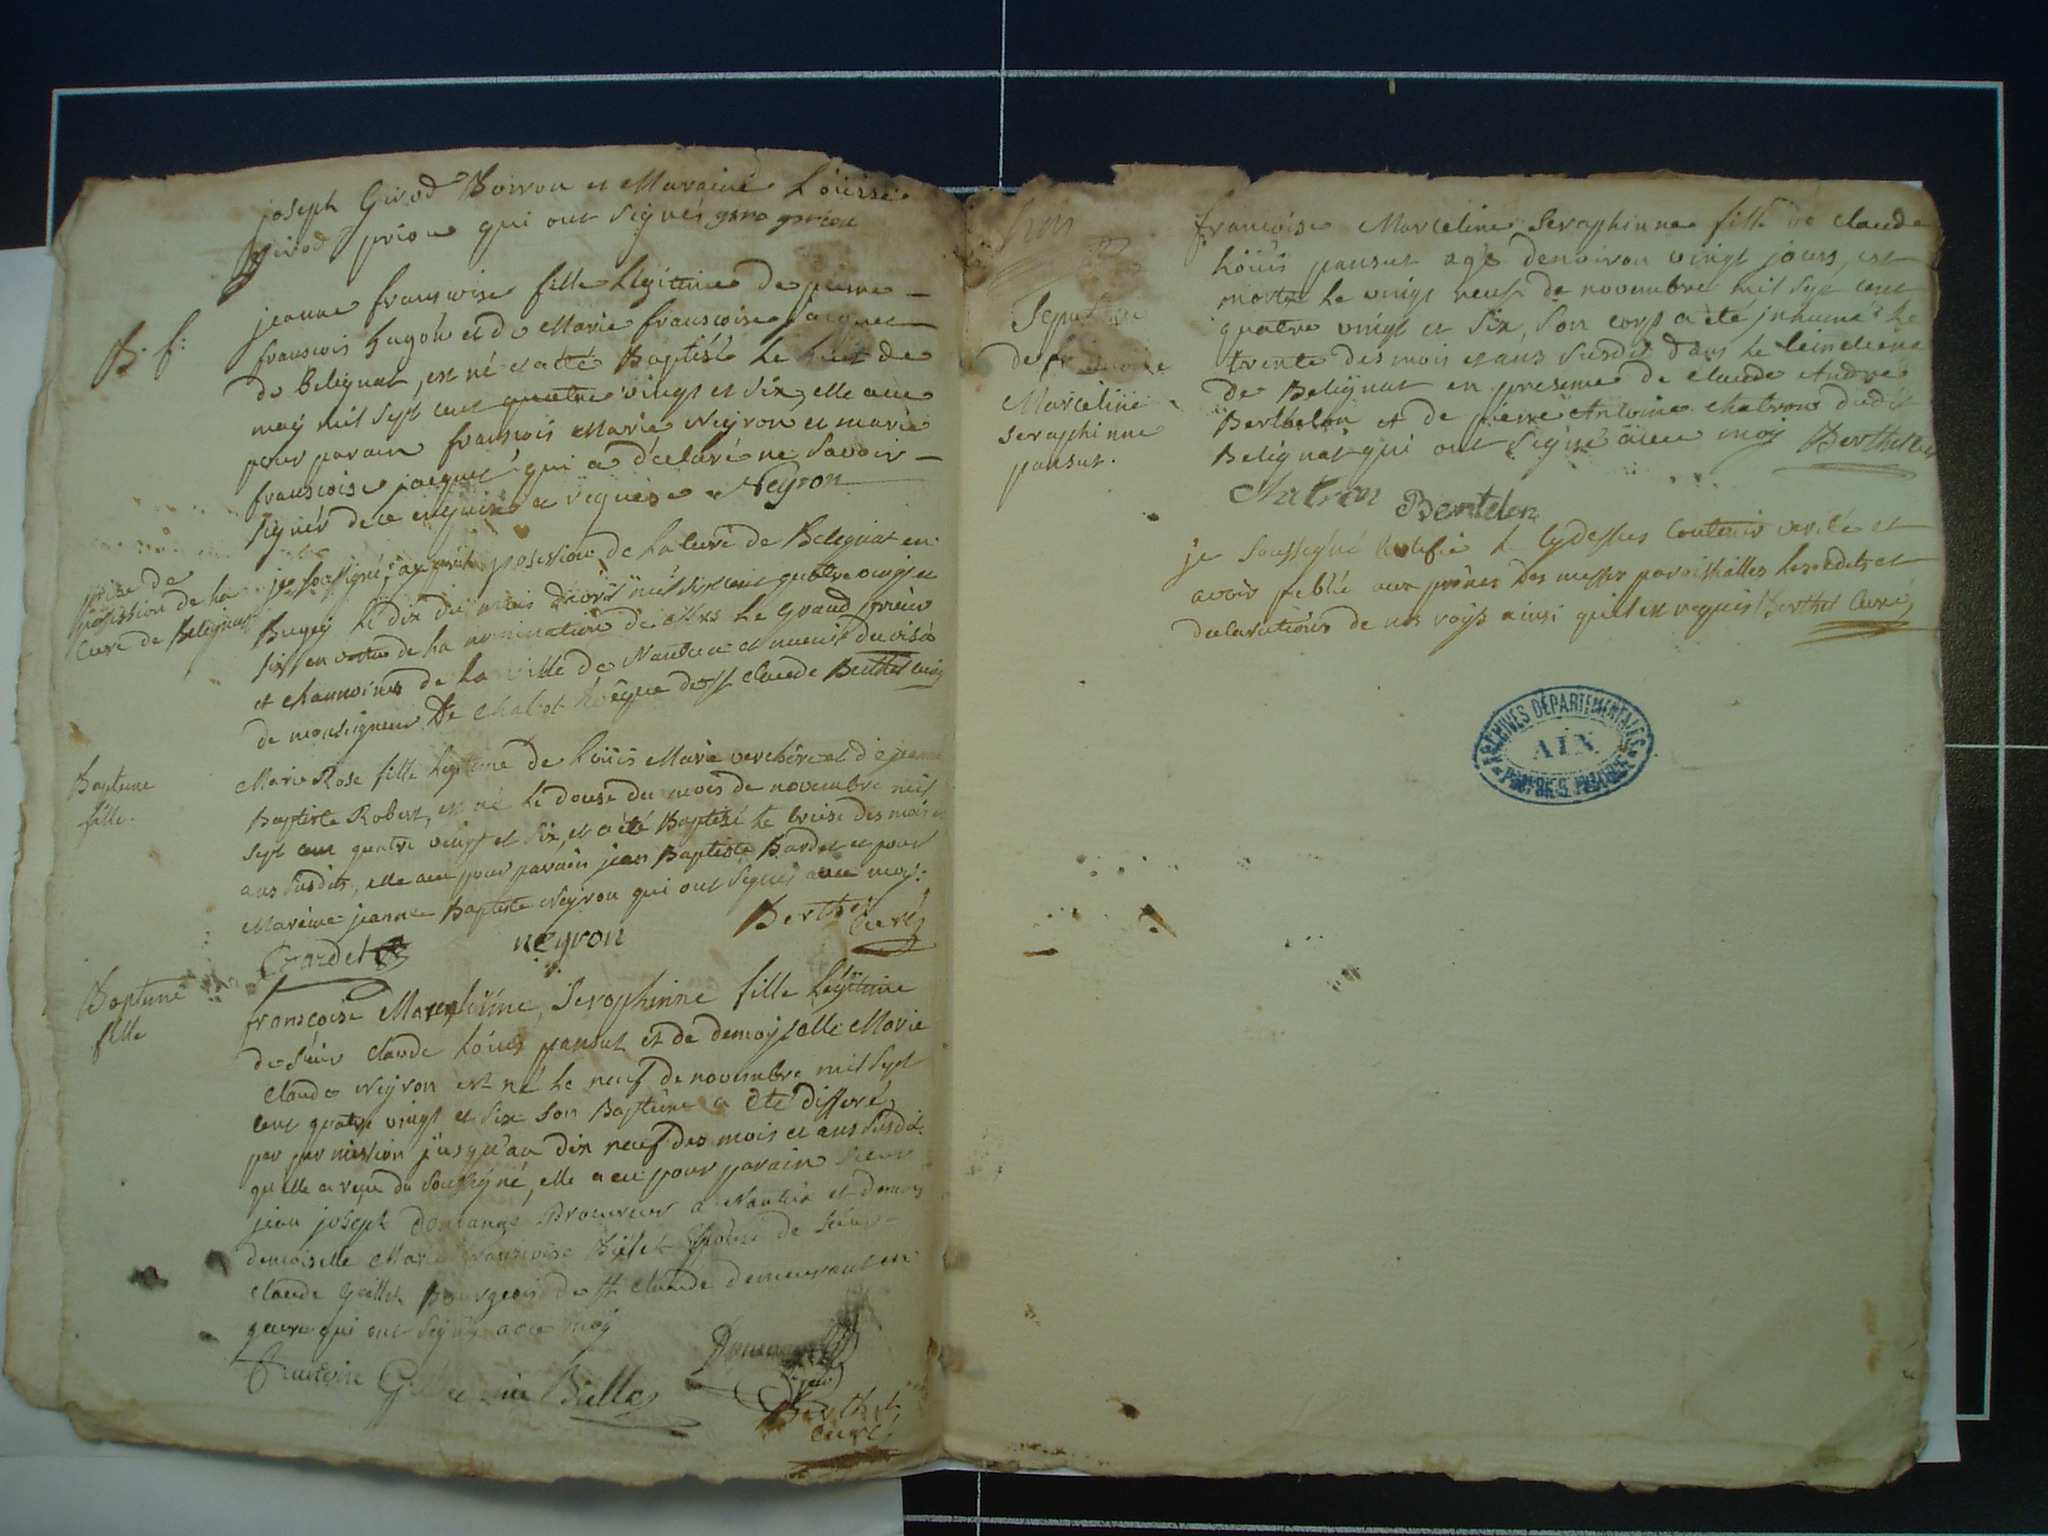 joseph Girod Boiron et Maraine Loüisse
Girod prion qui ont signés
B. f.
jeanne franscoise fille légitime de pierre
franscois hugon et de Marie franscoise jacquet
de Belignat, est né et a été Baptisé le huit de
may mil sept cent quatre vingt et six, elle a eu
pour parain franscois Marie Neyron et marie
franscoise jacquet qui a déclaré ne savoir
signér de ce enquise et requise Neyron
prise de
possession de la
Cure de Belignat
je soussigné, ay prit possession de la Cure de Belignat en
Bugey le dix du mois d'avril mil sept cent quatre vingt et
six en vertu de la nomination de Mrs le Grand prieur
et chanoines de la ville de Nantua et muni du visa
de monseigneur De Chabot évêque de st claude Berthet curé
Baptême
fille.
Marie Rose fille légitime de Loüis Marie verchère et de jeanne
Baptiste Robert, est né le douse du mois de novembre mil
sept cent quatre vingt et six, et a été Baptisé le treise des mois et
ans susdits, elle a eu pour parain jean Baptiste Bardet et pour
Maréine jeanne Baptiste Neyron qui ont signés avec moy.
Bardet neyron Berthet
Curé
Baptême
fille
franscoise Marceline Seraphinne fille légitime
de sieur claude Loüis pansut et de demoyselle Marie
claude Neyron est né le neuf de novembre mil sept
cent quatre vingt et six son Baptême a été differé
par permission jusqu'au dix neuf des mois et ans susdit
qu'elle a reçu du soussigné, elle a eu pour parain sieur
jean joseph Procureur a Nantua et
demoiselle Marie franscoise Billet épouse de sieur
claude Gillet Bourgeois de st claude demeurant en
qui ont signés avec moy
Billet
Berthet
curé
Sepulture
de franscoise
Marceline
seraphinne
pansut.
francoise Marceline Seraphinne fille de claude
Loüis pansut agé denviron vingt jours, est
morte le vingt neuf de novembre mil sept cent
quatre vingt et six, son corp a été inhumé le
trente des mois et ans susdit dans le cimetiere
de Belignat en presence de claude André
Berthelon et de pierre Antoine chatron dudit
Belignat qui ont signé avec moy Berthet curé
Chatron Bertelon
je soussigné Certifie le Cydessus Contenir verité et
avoir publié aux prônes des messes paroissialles les edits et
declarations de nos roys ainsi quil est requis Berthet Curé
ARCHIVES DÉPARTEMENTALES
AIN